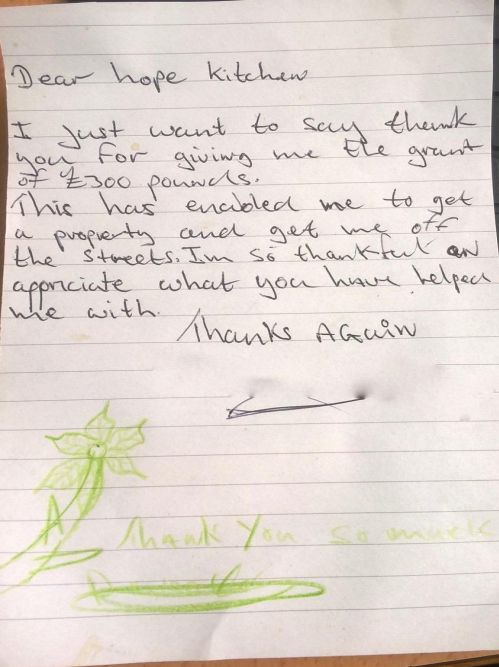 Dear hope kitchen
I just want to say thank
you for giving me the grant
of £300 pounds.
This has enabled me to get
a property and get me off
the streets. Im so thankful an
appriciate what you have helped
me with.
Thanks AGain
Thank You so much